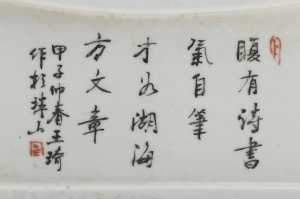 腹有詩書
氣自華
才如湖海
方文章
甲子仲春王琦
作於珠山